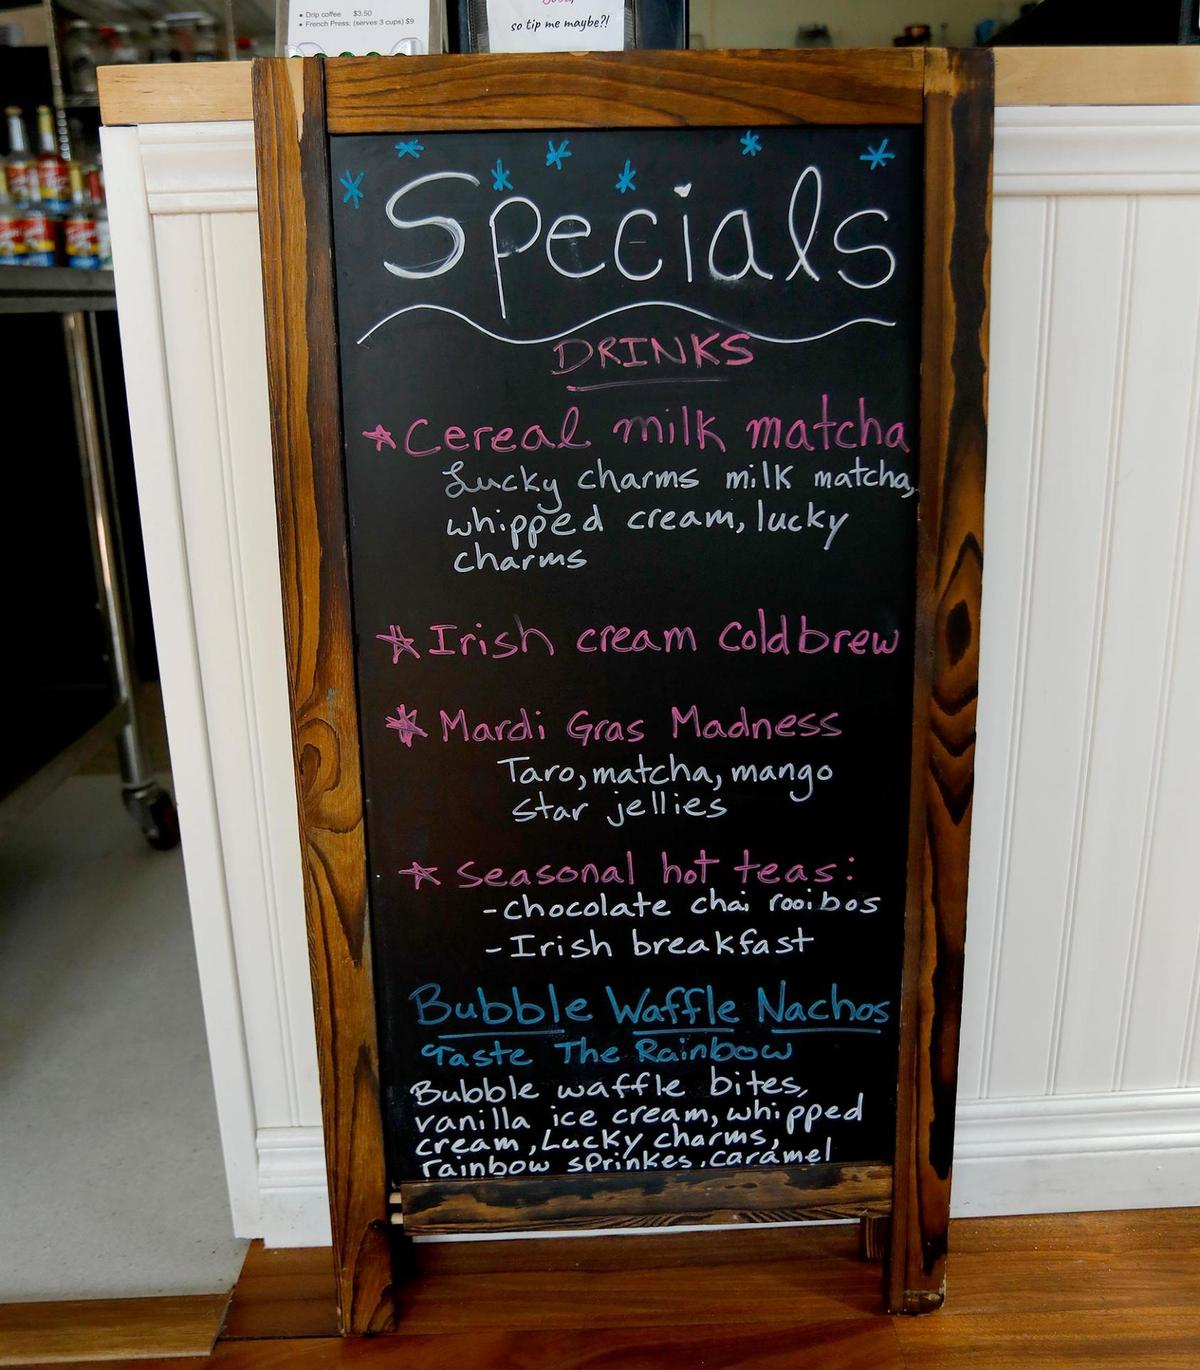 • Drip coffee $3.50
• French Press: (serves 3 cups) $9
so tip me maybe?!
Specials
DRINKS
Cereal milk matcha
Lucky charms milk matcha,
whipped cream, lucky
charms
Irish cream Coldbrew
Mardi Gras Madness
Taro, matcha, mango
star jellies
Seasonal hot teas:
-Chocolate chai rooibos
-Irish breakfast
Bubble Waffle Nachos
Taste The Rainbow
Bubble waffle bites,
vanilla ice cream, whipped
cream, Lucky charms,
rainbow sprinkes, caramel